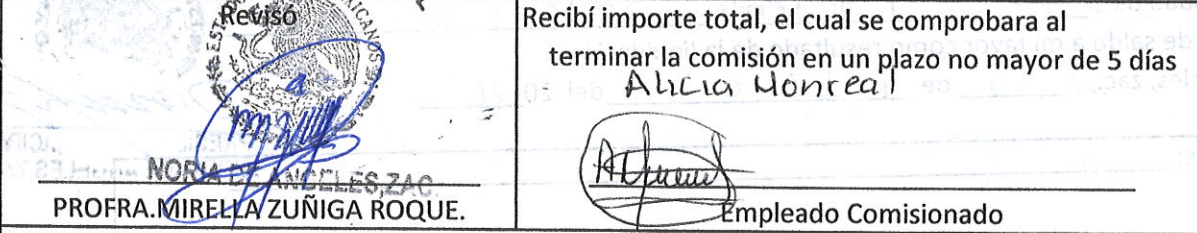 Revisó
NORIA DE ANGELES, ZAC.
PROFRA.MIRELLA ZUÑIGA ROQUE.
Recibí importe total, el cual se comprobara al
terminar la comisión en un plazo no mayor de 5 días
Alicia Monreal
Empleado Comisionado